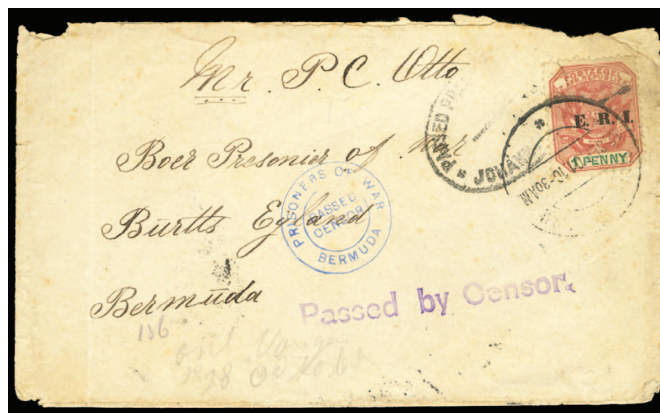 Mr. P. C. Otto
Boer Presonier of War
Burtts Eyland
Bermuda
E. R. I.
1 PENNY
PASSED
10-30AM
PRISONERS OF WAR
PASSED
CENSOR
BERMUDA
Passed by Censor.
186